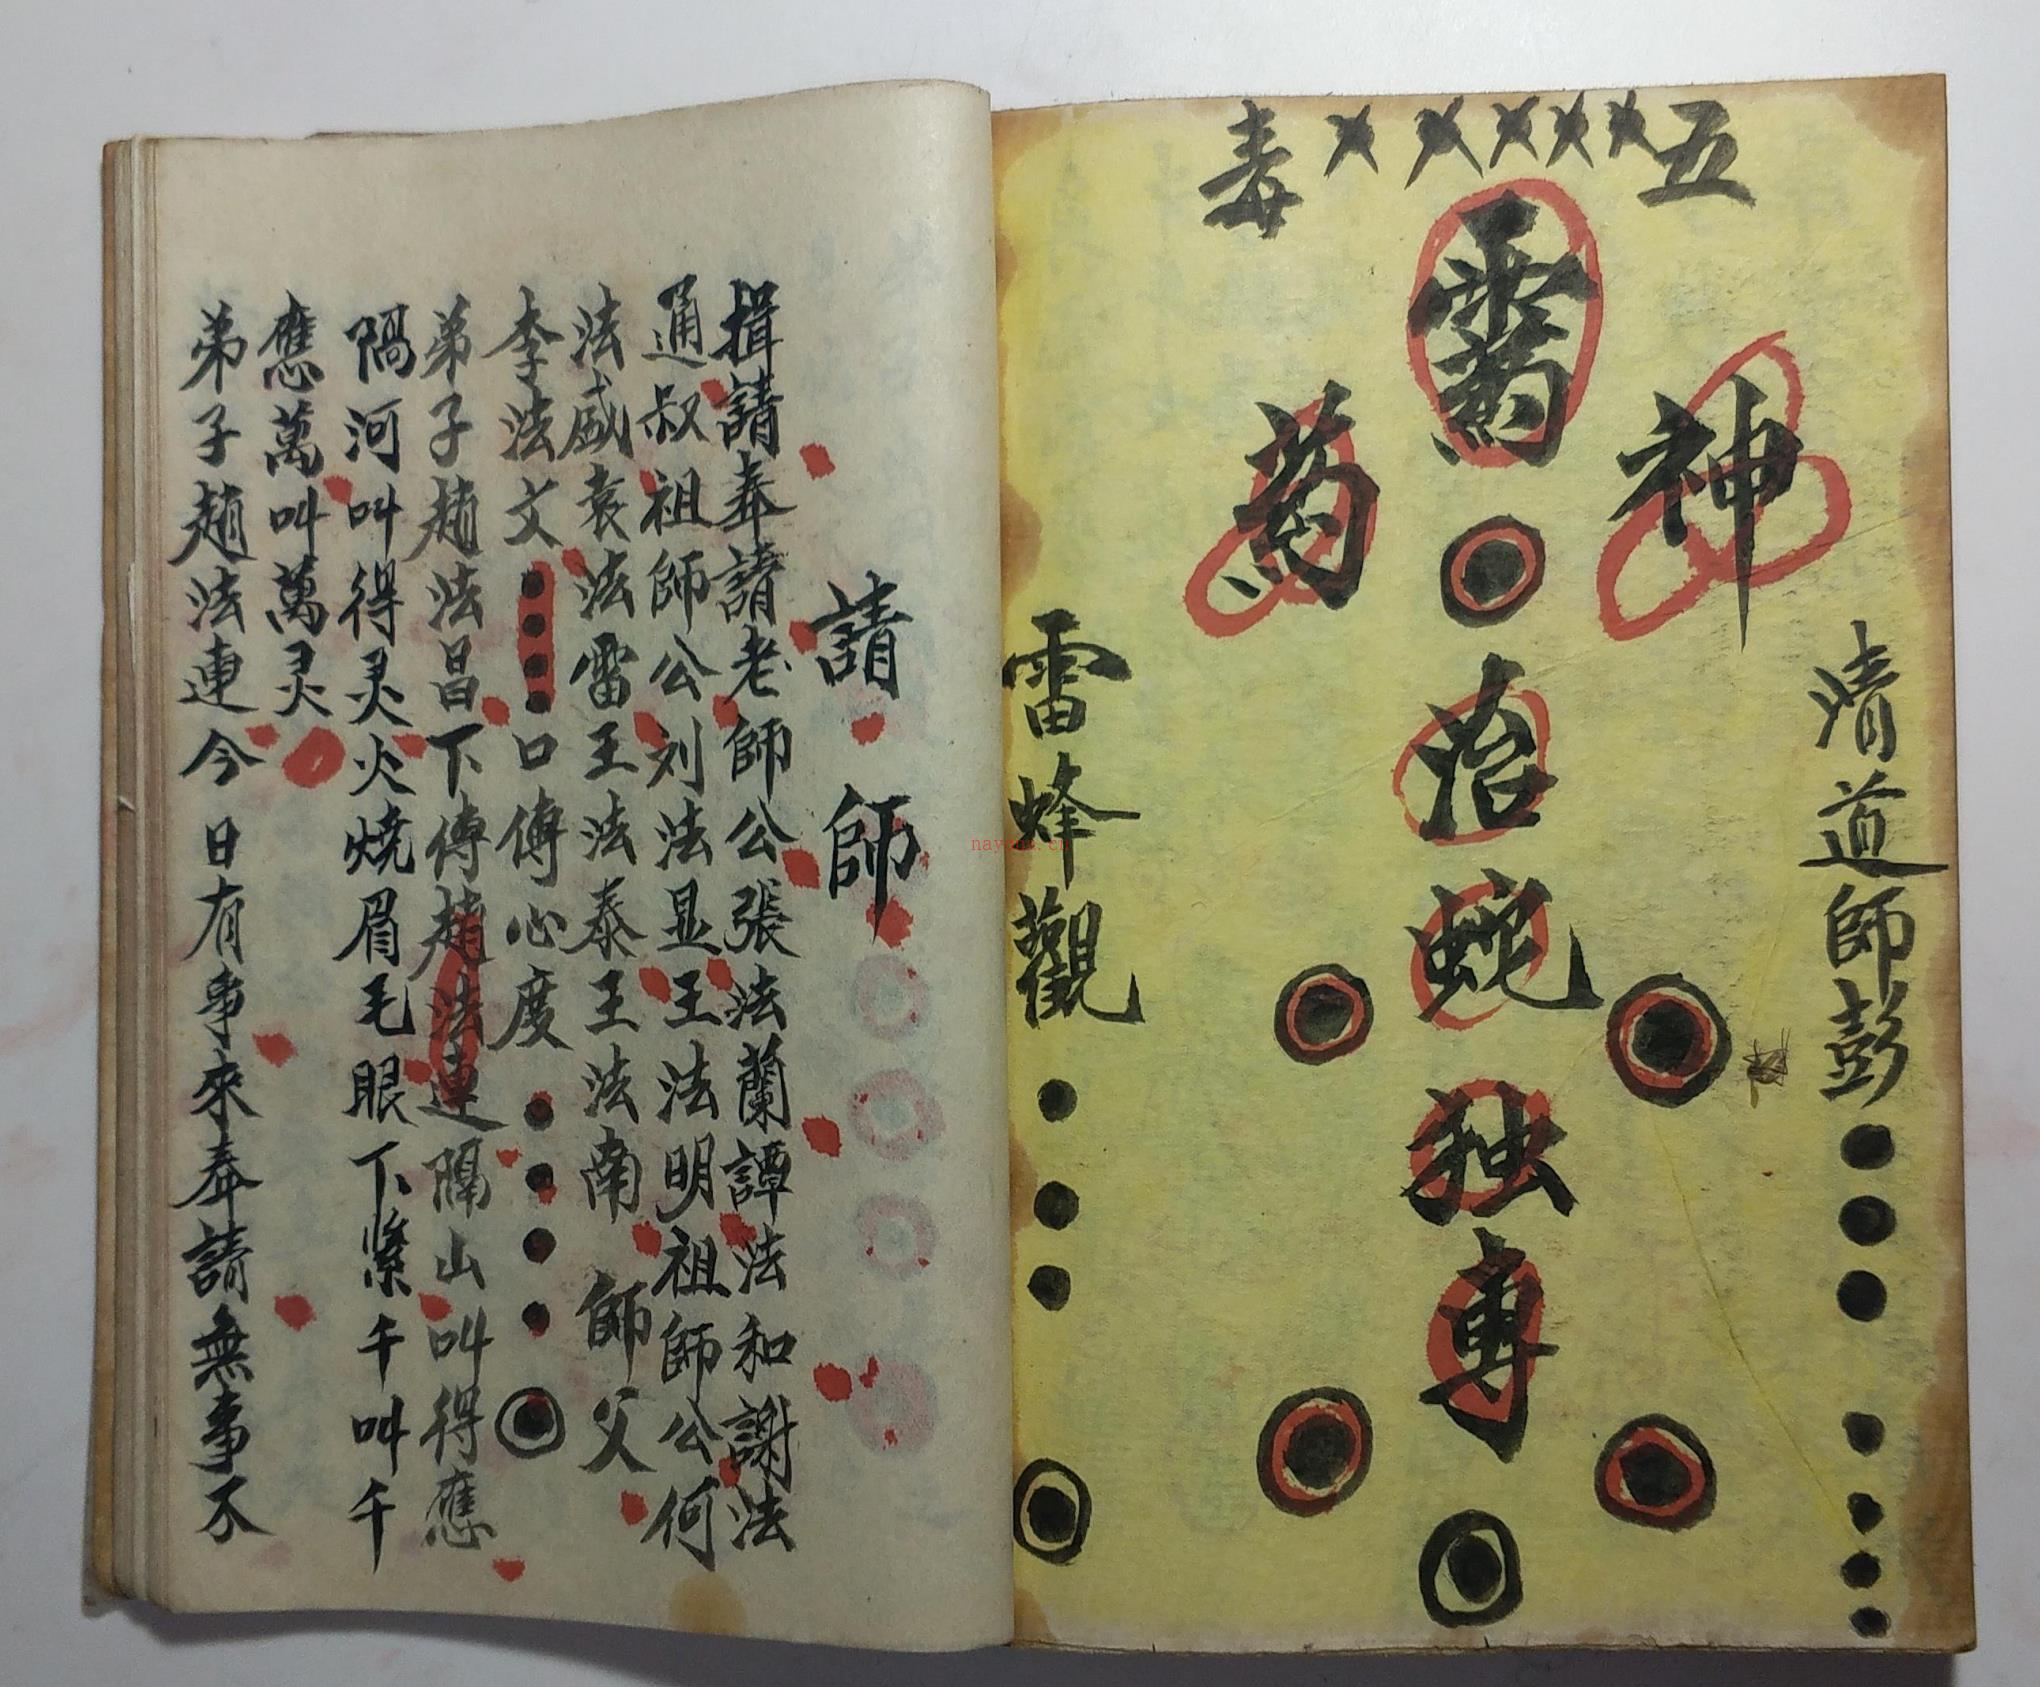 五×××××毒
神
藥
治蛇独專
清道師彭
雷蜂觀
請師
揖請奉請老師公張法蘭譚法和謝法
通叔祖師公刘法显王法明祖師公何
法盛袁法雷王法泰王法南 師父
李法文 口傳心度
弟子趙法昌下傳趙法連隔山叫得應
隔河叫得灵火燒眉毛眼下緊千叫千
應萬叫萬灵
弟子趙法連今日有事來奉請無事不